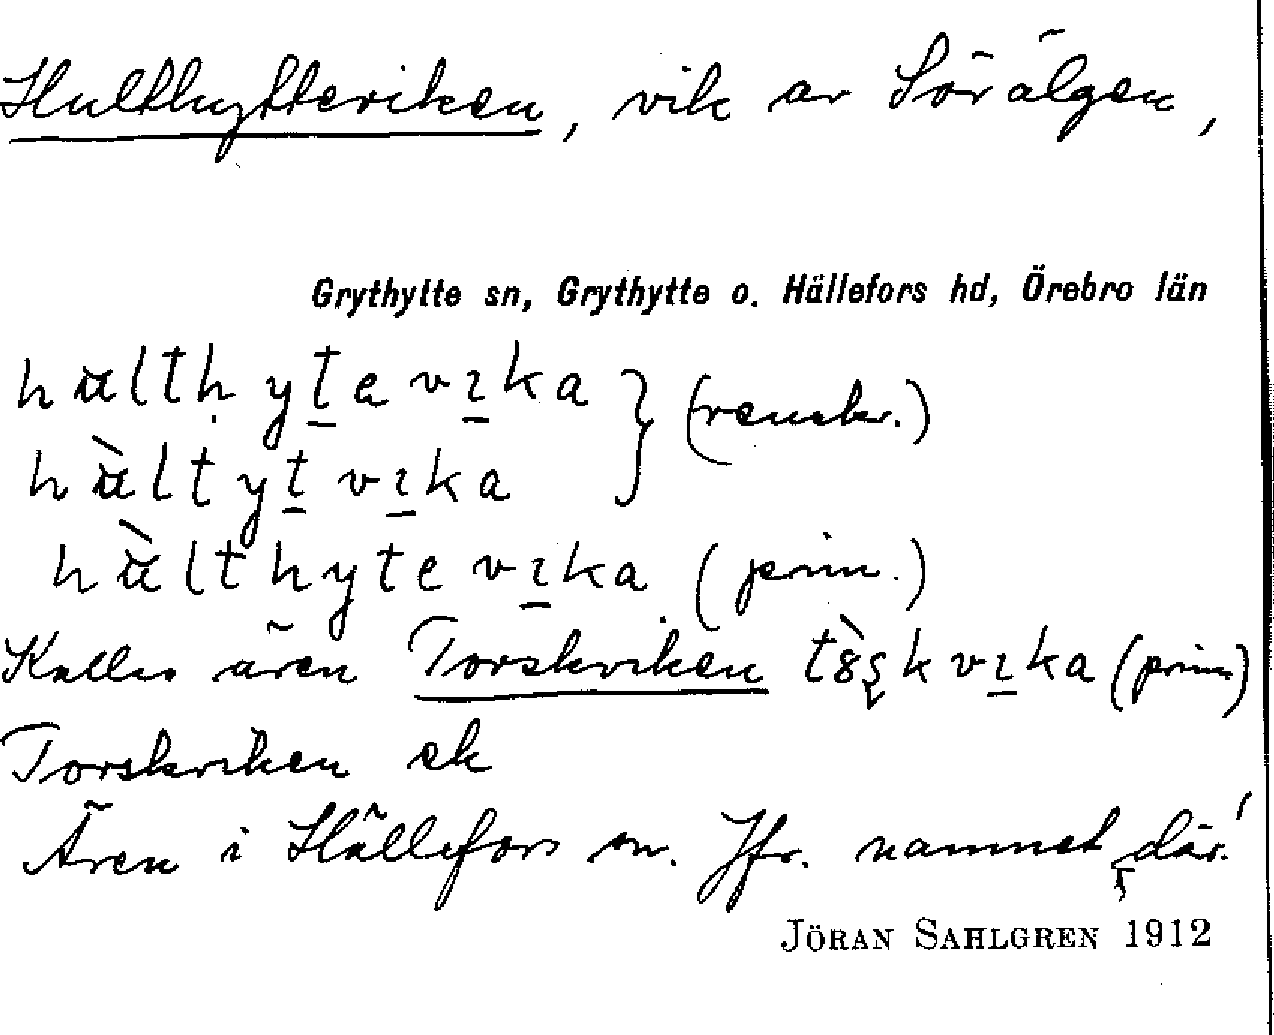 Hulthytteviken, vik av Sör älgen,
Grythytte sn, Grythytte o. Hällefors hd, Örebro län
hult̶hytevıka } (renskr.)
hùltytvıka
hùlthytevıka (prim.)
Kallas även Torskviken tòşkvıka (prim)
Torskviken ek
Även i Hällefors sn. Jfr. namnet där!
JÖRAN SAHLGREN 1912